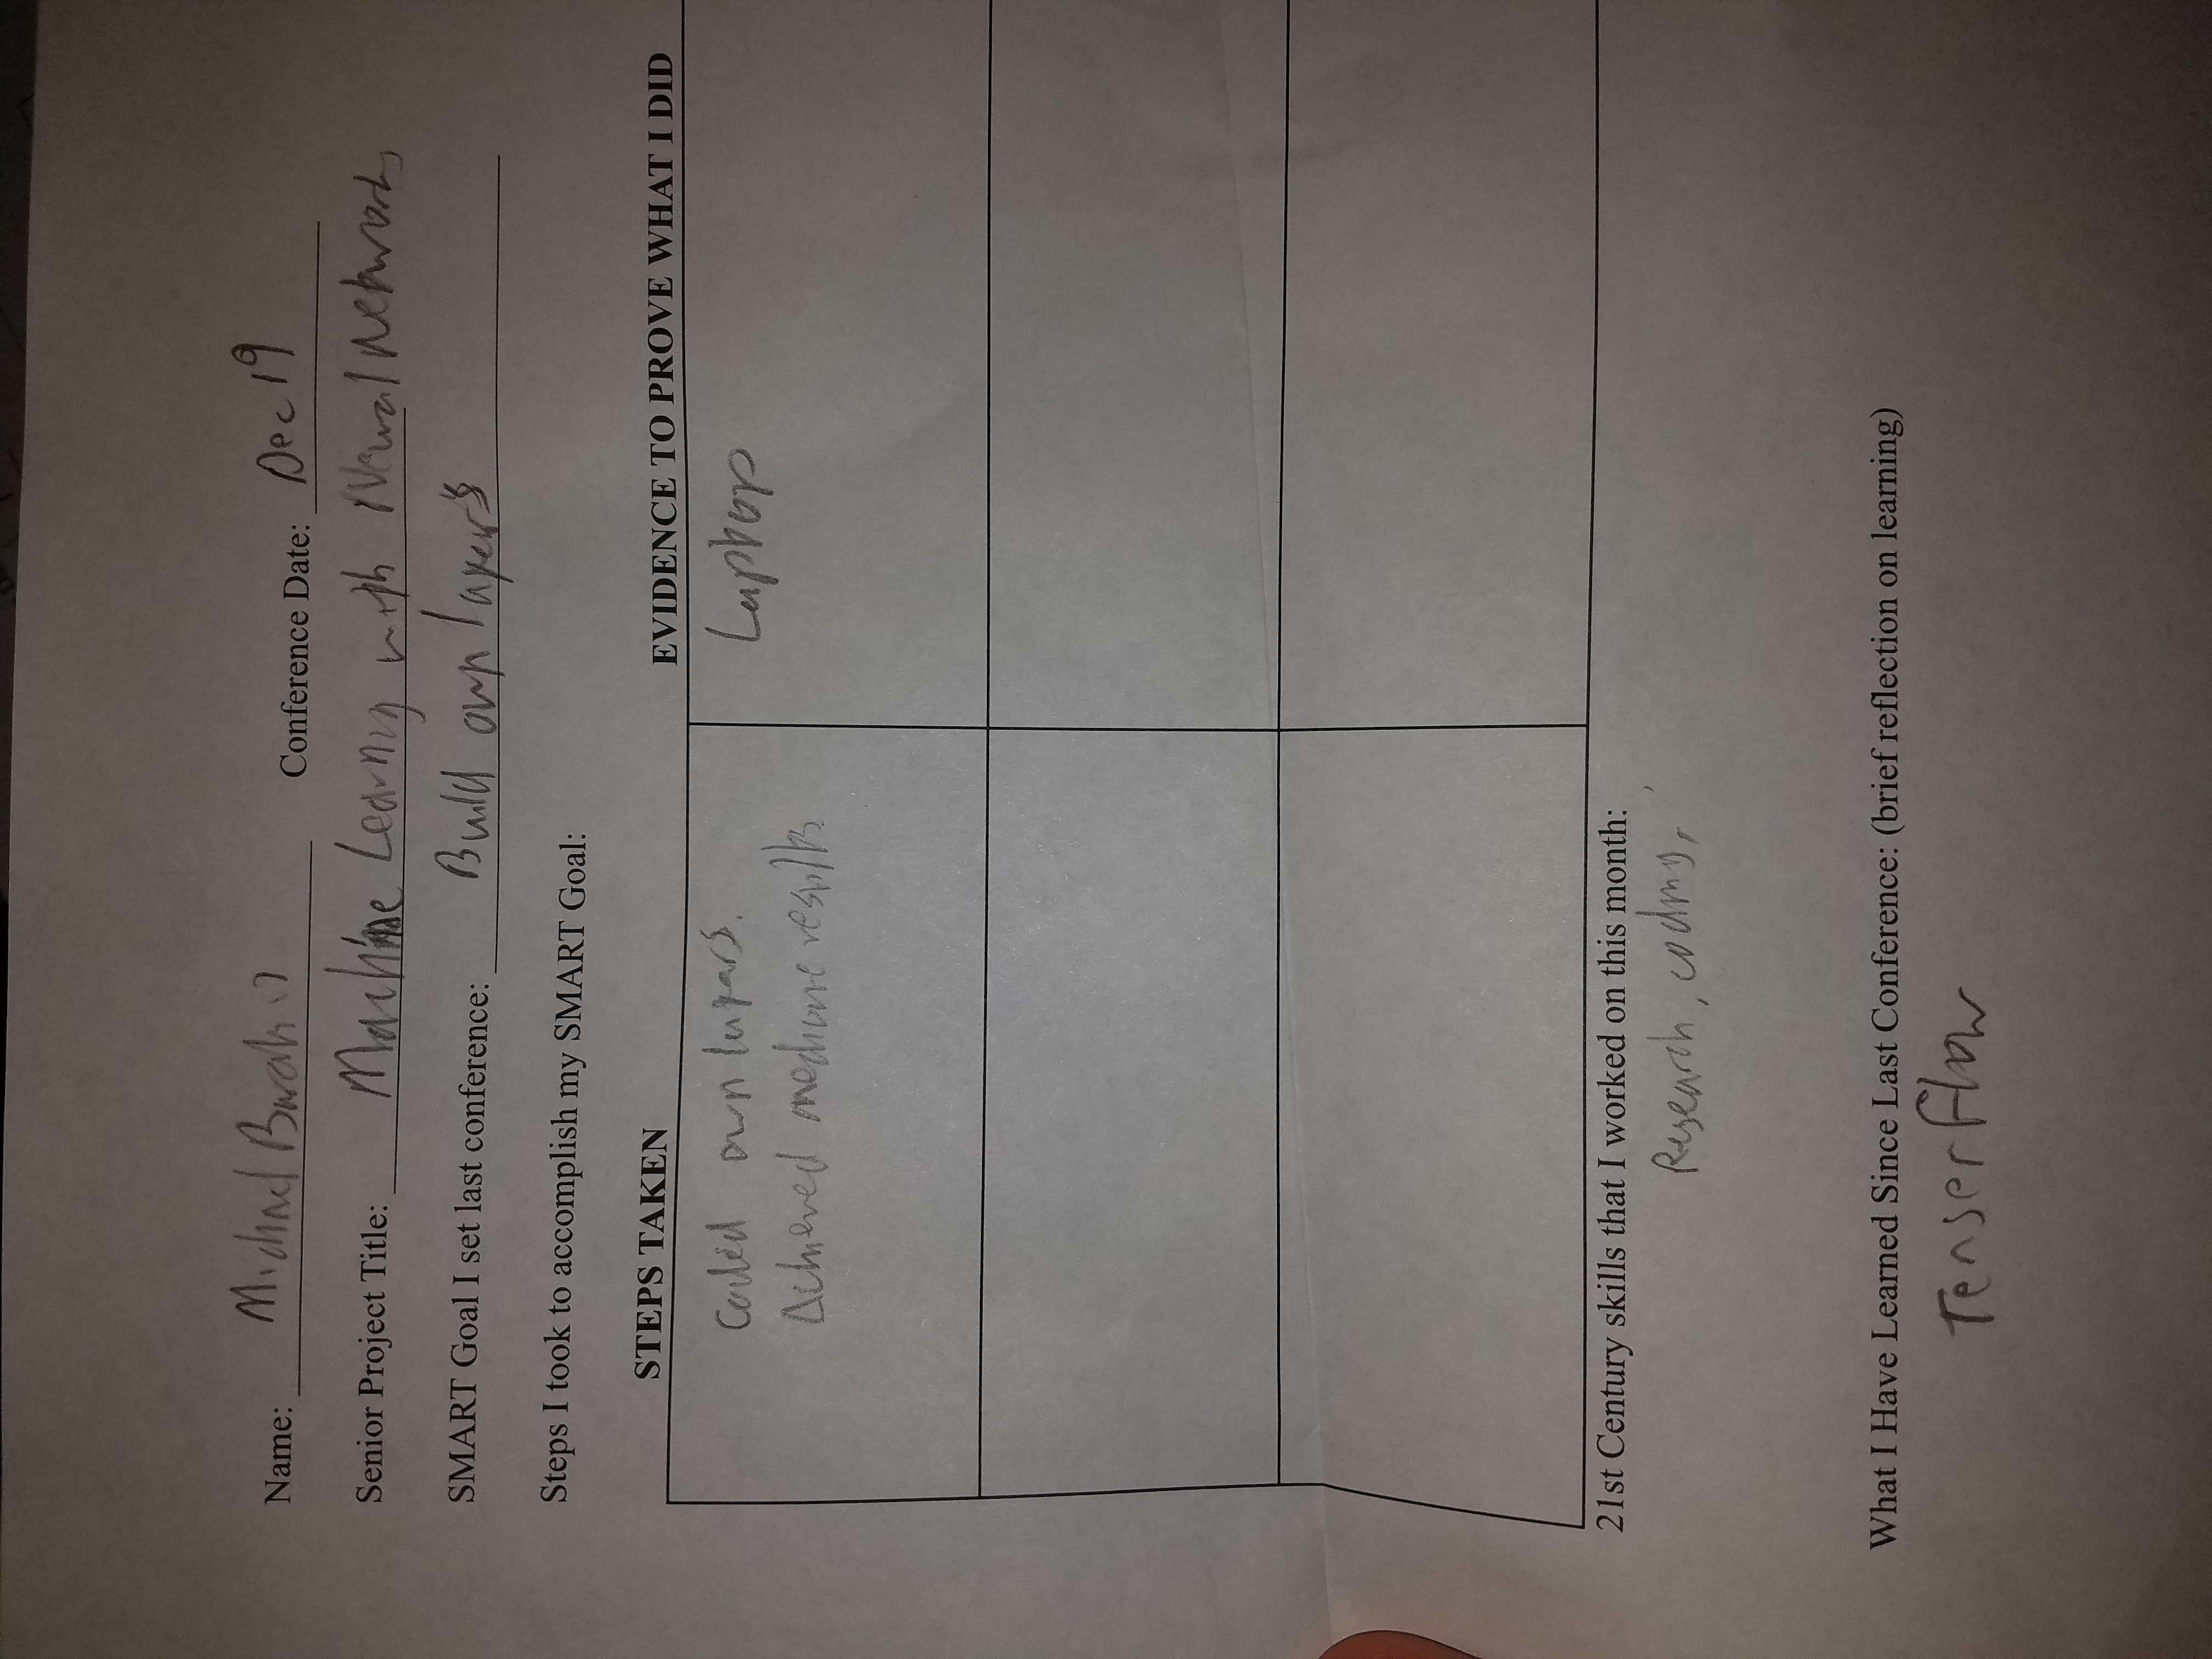 Name: Michael Conference Date: Dec 19
Senior Project Title: Machine Learning with Neural Networks
SMART Goal I set last conference: Build own layers
Steps I took to accomplish my SMART Goal:
STEPS TAKEN EVIDENCE TO PROVE WHAT I DID
Coded own layers. Laptop
Achieved mediocre results
21st Century skills that I worked on this month:
Research, coding,
What I Have Learned Since Last Conference: (brief reflection on learning)
Tenserflow